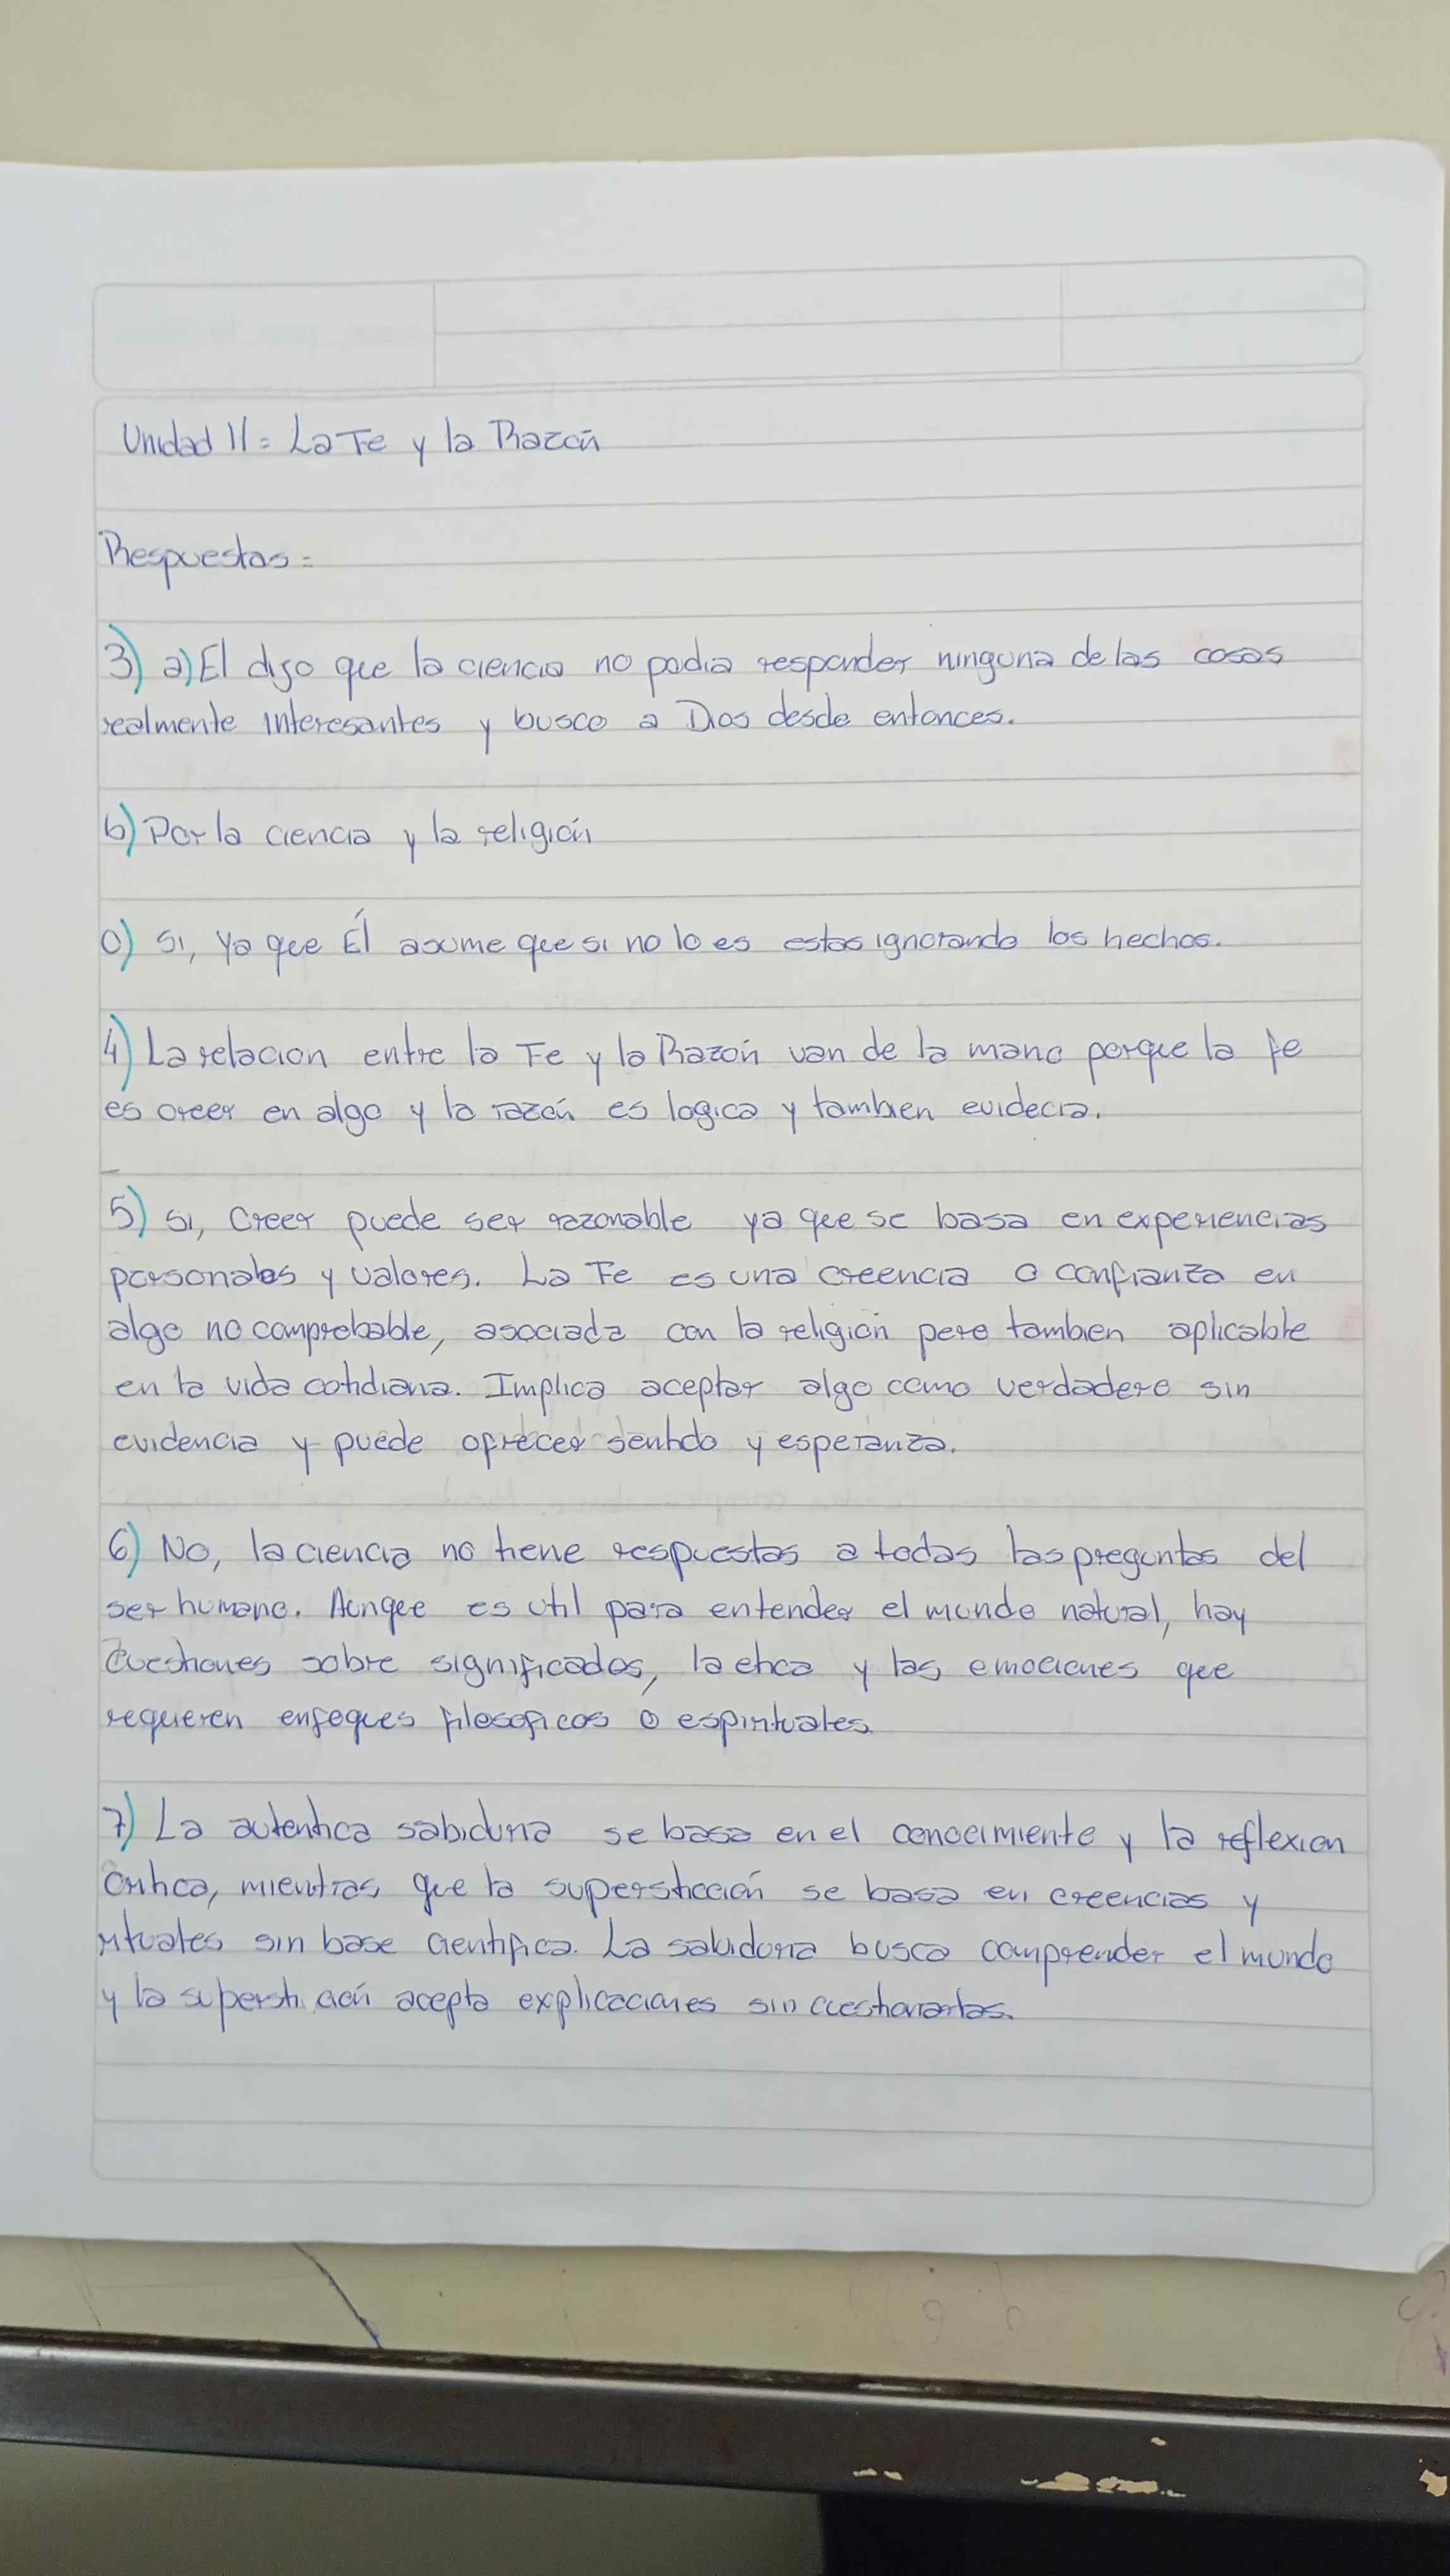 Unidad II = La Fe y la Razón
Respuestas =
3) a) El dijo que la ciencia no podia responder ninguna de las cosas
realmente interesantes y busco a Dios desde entonces.
b) Por la ciencia y la religión
c) Si, ya que Él asume que si no lo es estas ignorando los hechos.
4) La relacion entre la Fe y la Razón van de la mano porque la fe
es creer en algo y la razón es logica y tambien evidecia.
5) Si, Creer puede ser razonable ya que se basa en experiencias
personales y valores. La Fe es una creencia o confianza en
algo no comprobable, asociada con la religión pero tambien aplicable
en la vida cotidiana. Implica aceptar algo como verdadero sin
evidencia y puede ofrecer sentido y esperanza.
6) No, la ciencia no tiene respuestas a todas las preguntas del
ser humano. Aunque es util para entender el mundo natural, hay
cuestiones sobre significados, la etica y las emociones que
requieren enfoques filosoficos o espirituales.
7) La autentica sabiduria se basa en el conocimiento y la reflexion
critica, mientras que la superstición se basa en creencias y
rituales sin base cientifica. La sabiduria busca comprender el mundo
y la superstición acepta explicaciones sin cuestionarlas.